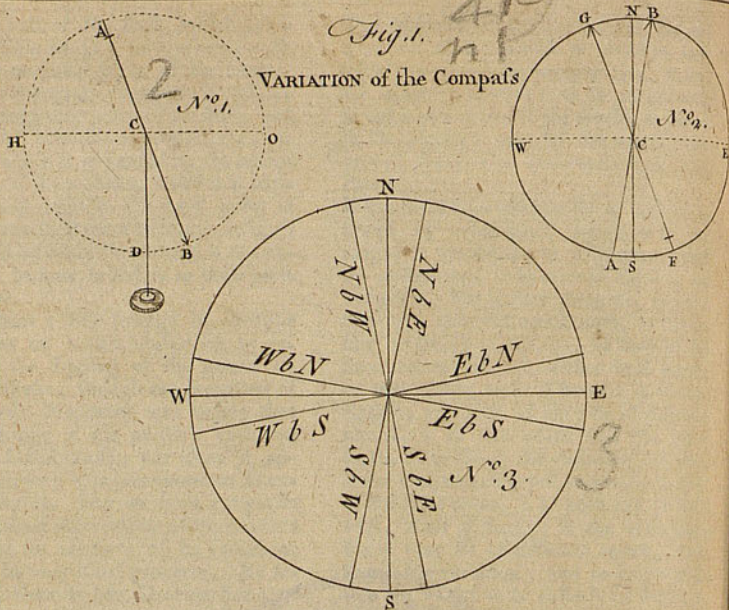 Fig.1.
VARIATION of the Compaſs
4
2
n
A
N.º1.
H
C
O
D
B
G
N
B
N.º2.
W
C
E
A
S
F
N
NbW
NbE
WbN
EbN
W
E
WbS
EbS
SbW
SbE
N.º3.
3
S